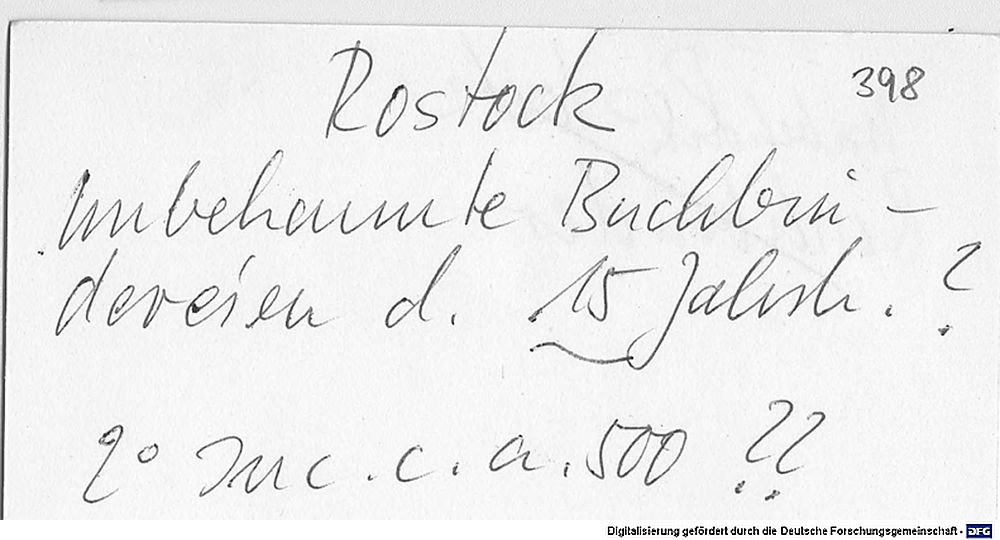 Rostock 398
unbekannte Buchbin-
dereien d. 15 Jahrh. ?
2° Inc. c. a. 500 ??
Digitalisierung gefördert durch die Deutsche Forschungsgemeinschaft - DFG